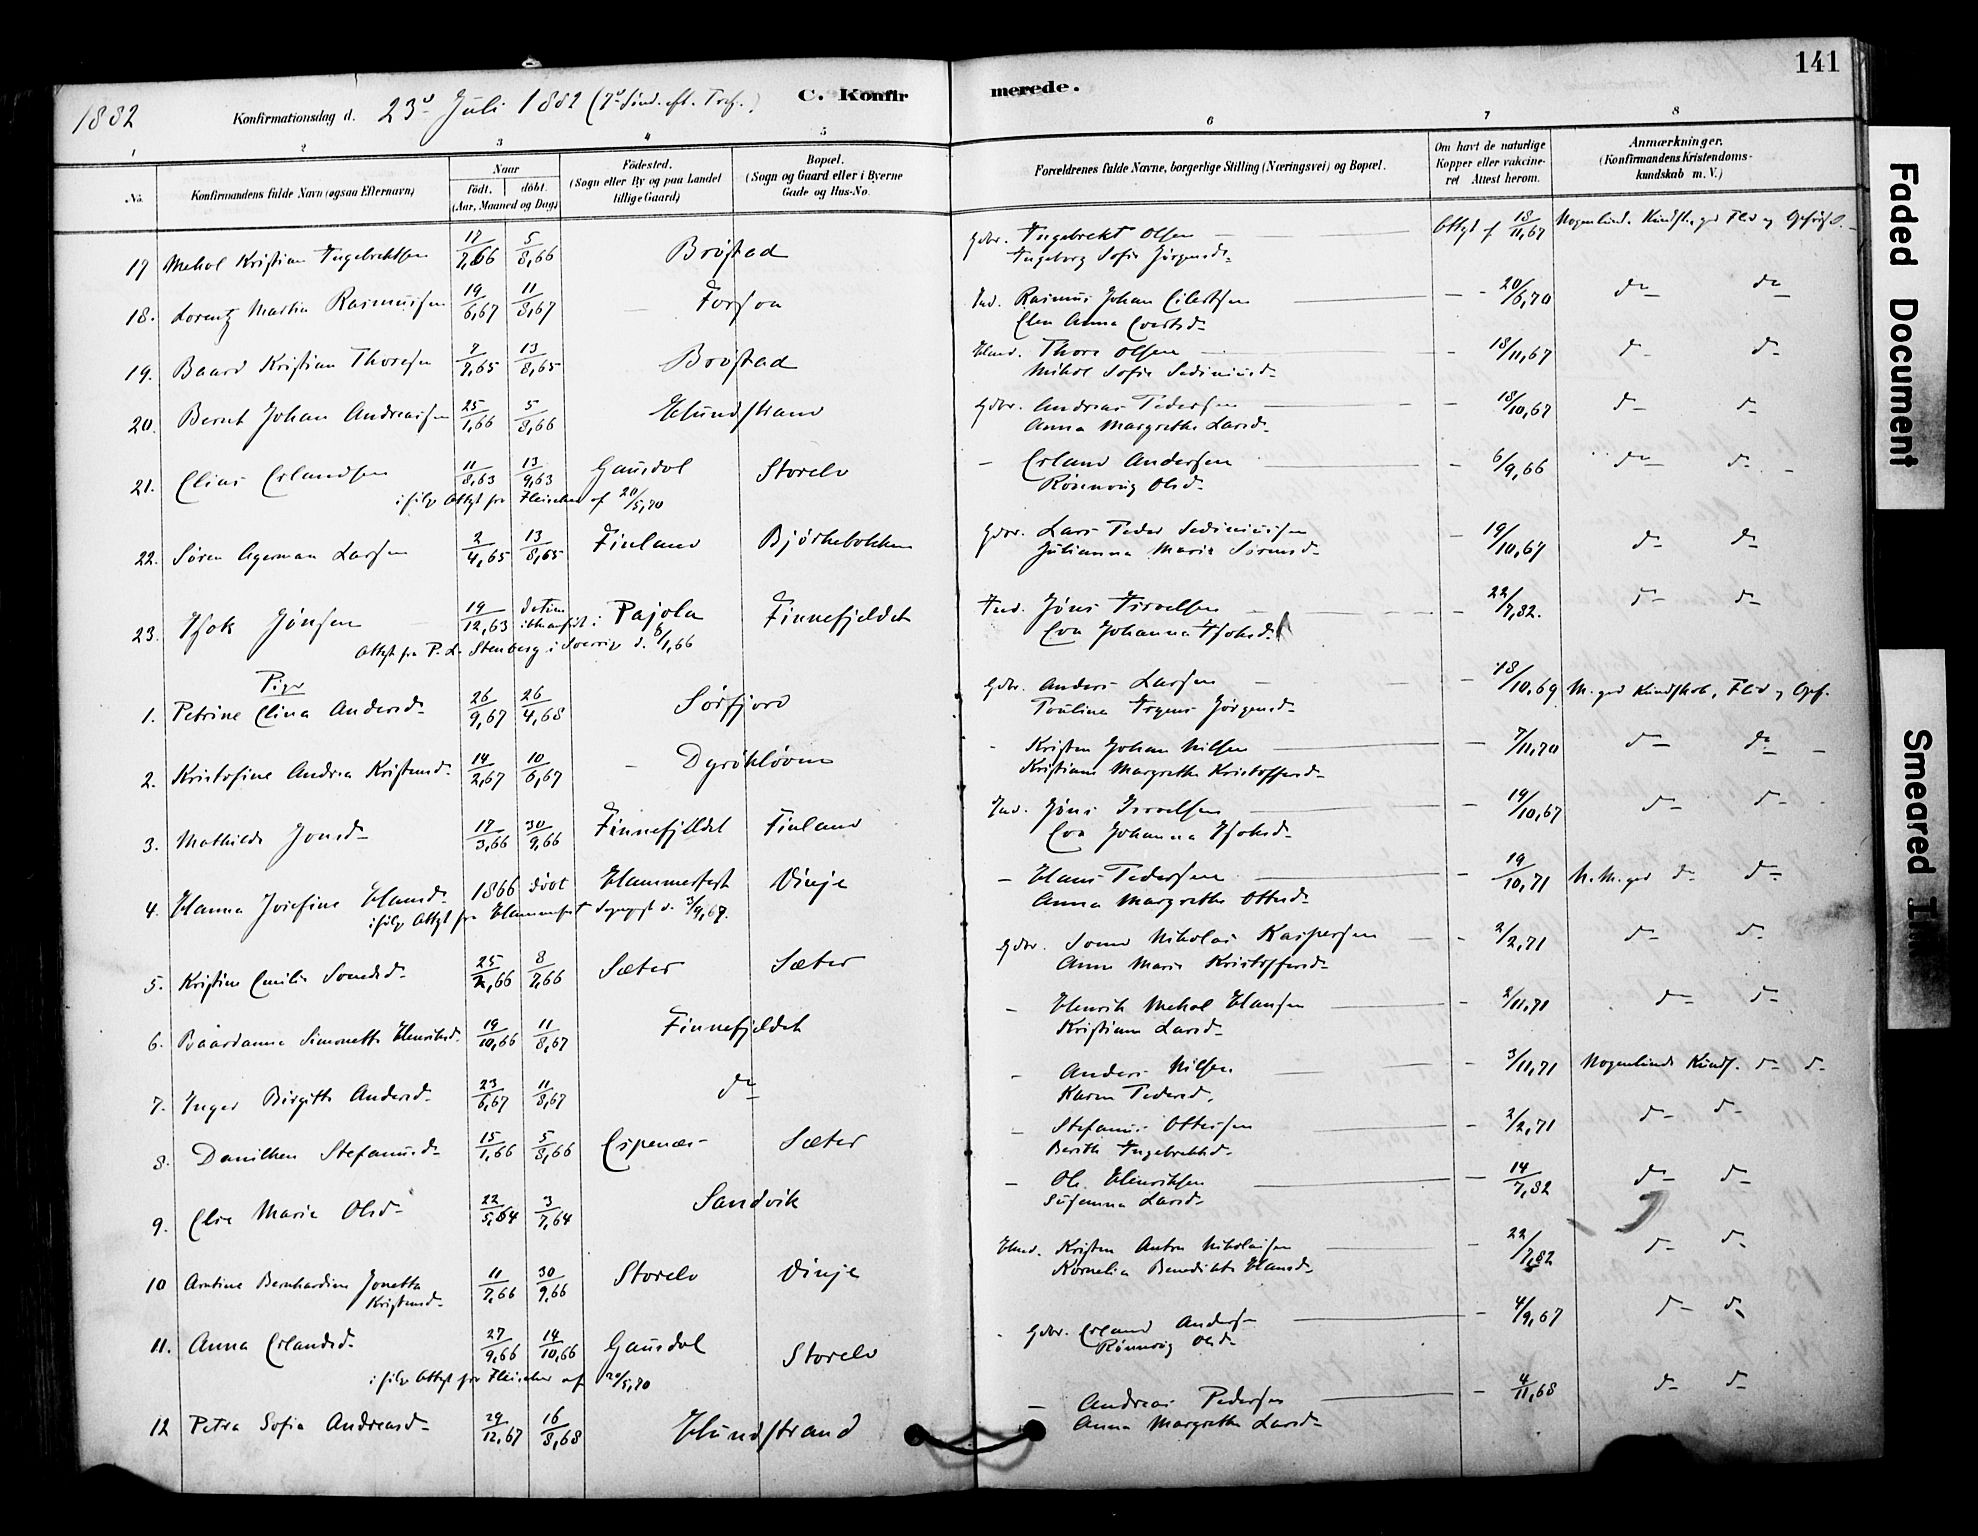 141
1882 Konfirmationsdag d. 23d Juli 1882 C. Konfirmerede.
1 2 3 4 5 6 7 8
No. Konfirmandens fulde Navn (ogsaa Efternavn) Naar födt. döbt. (Aar, Maaned og Dag) Födested. (Sogn eller By og paa Landet tillige Gaard) Bopæl. (Sogn og Gaard eller i Byerne Gade og Hus-No. Forældrenes fulde Navne, borgerlige Stilling (Næringsvei) og Bopæl. Om havt de naturlige Kopper eller vakcineret Attest herom. Anmærkninger. (Konfirmandens Kristendomskundskab m. V.)
17 Mekal Kristian Ingebrektsen 17/7,66 5/8,66 Brøstad Gdbr. Ingebrekt Olsen Attest f 18/11,67 Nogenlunde Kundsk. god Flid og
Ingeborg Sofie Jørgensd.
18. Lorentz Martin Rasmussen 19/6,67 11/8,67 Forsoa Ind. Rasmus Johan Eilertsen — 20/6,70 do do
Elen Anna Evertsd.
19. Baard Kristian Thoresen 7/7,65 13/8,65 Brøstad Huusd. Thore Olsen — 18/11,67 d d
Mikol Sofie Sediniusd.
20. Bernt Johan Andreassen 25/1,66 5/8,66 Hundstrand Gdbr. Andreas Pedersen — 18/10,67 d d
Anna Margrethe Larsd.
21. Elias Erlandsen 11/8,63 13/9,63 Gausdal Storelv — Erland Andersen — 6/9,66 do d
ifølge Attest fra Fleischer af 20/5,70 Rønnoug Olsd.
22. Søren Agerman Larsen 2/4,65 13/8,65 Finland Bjørkebakken Gdbr. Lars Peder Sediniussen — 19/10,67 d d
Julianna Marie Sørensd.
23. Isak Jønsen 19/12,63 Pajola Finnefjeldet Ind. Jøns Israelsen — 22/7,82. d d
Attest fra P. L. Stenberg i Sverrig d. 8/1,66 Eva Johanna Isaksd.
Piger
1. Petrine Elina Andersd. 26/9,67 26/4,68 Sørfjord Gdbr. Anders Larsen — 18/10,69 M. god Kundskab, Flid og Opf.
Paulina Jørgensd.
2. Kristofine Andrea Kristensd. 14/2,67 10/6,67 Dyrøkløven - Kristen Johan Nilsen — 7/11,70 d do
Kristiane Margrethe Kristoffersd.
3. Mathilde Jonsd. 17/3,66 30/9,66 Finnefjeldet Finland Ind. Jøns Israelsen — 19/10,67 d d
Eva Johanna Isaksd.
4. Hanna Josefine Hansd. 1866 døbt Hammerfest Vinje — Hans Pedersen — 19/10,71 M. M. god d d
ifølge Attest fra Hammerfest d. 3/9,67. Anna Margrethe Ottesd.
5. Kristine Emilie Sonesd. 25/2,66 8/7,66 Sæter Sæter Gdbr. Sone Nikolai Kaspersen — 2/2,71 d d
Anne Marie Kristoffersd.
6. Baardanna Simonette Henriksd. 19/10,66 11/8,67 Finnefjeldet — Henrik Mekal Hansen — 2/11,71 d d
Kristiane Larsd.
7. Inger Birgitte Andersd. 23/6,67 11/8,67 do - Anders Nilsen — 3/11,71 Nogenlunde Kunds. d d
Karen Pedersd.
8. Danilken Stefanusd. 15/1,66 5/8,66 Espenæs Sæter — Stefanus Ottesen — 2/2,71 d d
Berith Ingebrektsd.
9. Else Marie Olsd. 22/5,64 3/7,64 Sandvik — Ole Henriksen — 14/7,82 d d
Susanna Larsd.
10 Arntine Bernhardine Jonetta 11/7,66 30/9,66 Storelv Vinje Huusd. Kristen Anton Nikolaisen — 22/7,82 d d
Kristensd. Kornelia Benedikte Hansd.
11. Anna Erlandsd. 27/9,66 14/10,66 Gausdal Storelv Gdbr. Erland Anders — 4/9,67 d d
ifølge Attest fra Fleischer af 20/5,70 Rønnoug Olsd.
12 Petra Sofia Andreasd. 29/12,67 16/8,68 Hundstrand — Andreas Pedersen — 4/11,68 d d
Anna Margrethe Larsd.
Faded Document
Smeared